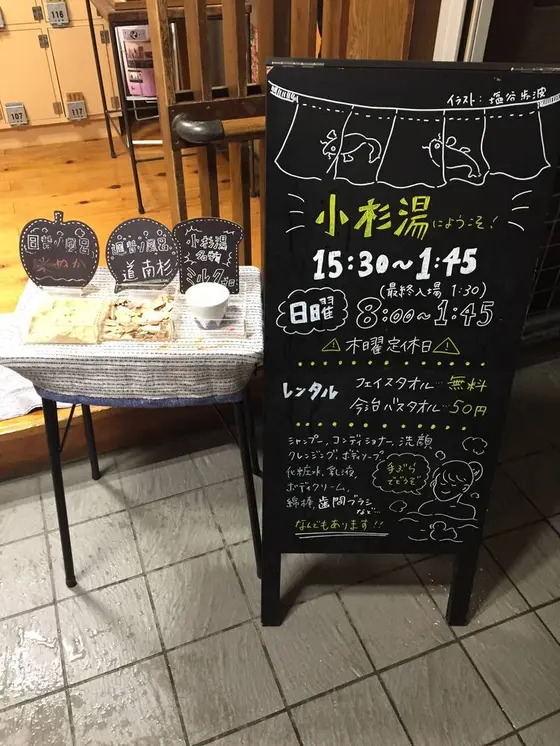 116
107
117
日替り風呂
米ぬか
週替り風呂
道南杉
小杉湯
名物
ミルク
イラスト：塩谷歩波
小杉湯にようこそ！
15:30〜1:45
(最終入場 1:30)
日曜 8:00〜1:45
木曜定休日
レンタル
フェイスタオル…無料
今治バスタオル…50円
シャンプー、コンディショナー、洗顔
クレンジング、ボディソープ
化粧水、乳液、
ボディクリーム、
綿棒、歯間ブラシ
など…
手ぶら
でどうぞ
なんでもあります！！